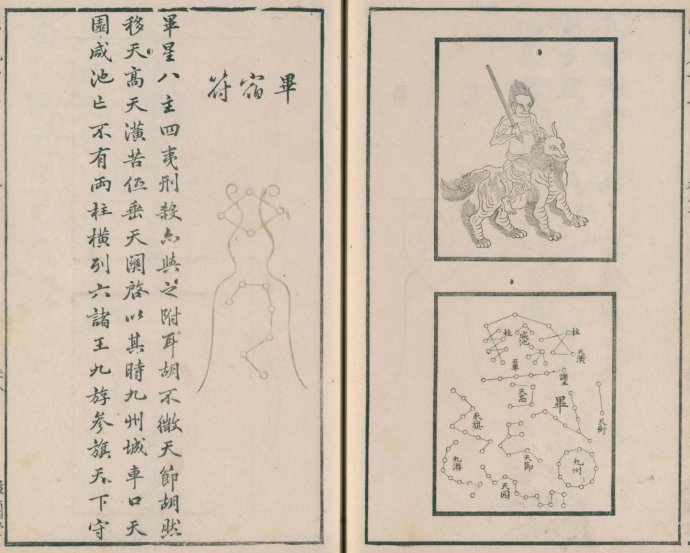 柱
天潢
咸池
柱
車
諸王
天高
畢
天街
參旗
天節
九州
九游
天園
畢宿符
畢星八主四夷刑殺亦與之附耳胡不天節胡然
移天高天潢苦伍垂天關啓以其時九州城車口天
園咸池亡不有兩柱橫列六諸王九斿參旗天下守